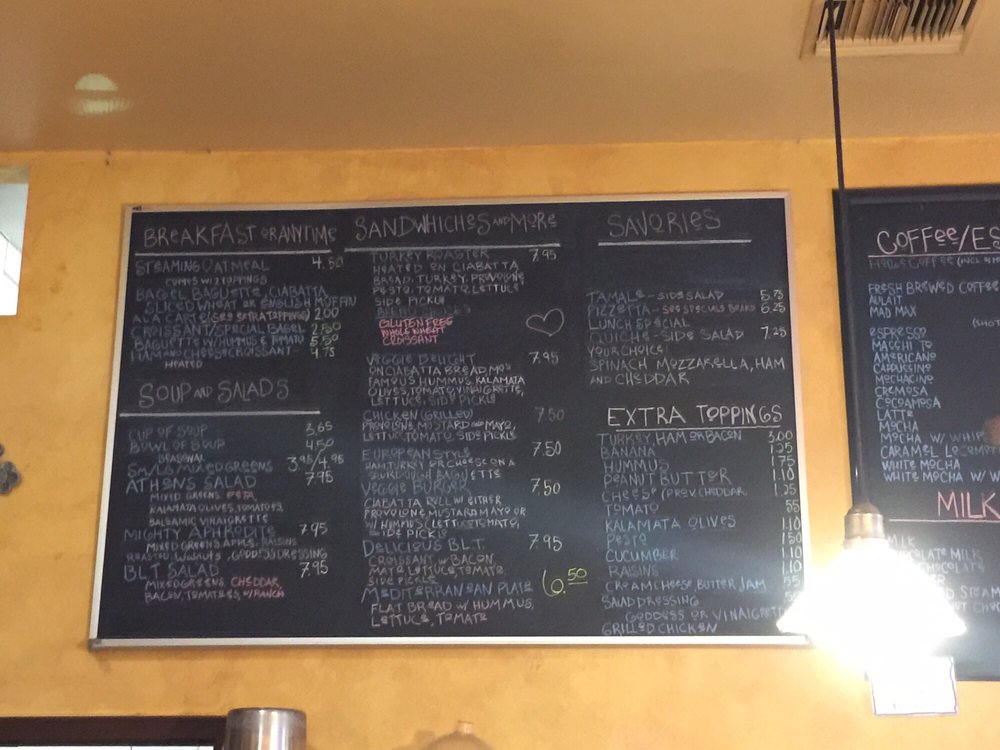 BREAKFAST OR ANYTIME
STEAMING OATMEAL 4.50
COMES W/ 2 TOPPINGS
BAGEL BAGUETTE, CIABATTA
SLICED WHEAT OR ENGLISH MUFFIN
(SEE EXTRA TOPPINGS) 2.00
CROISSANT/SPECIAL BAGEL 2.50
BAGUETTE W/HUMMUS & TOMATO 5.50
HAM AND CHEESE CROISSANT- 4.75
HEATED
SOUP AND SALADS
CUP OF SOUP 3.65
BOWL OF SOUP 4.50
SEASONAL
SM/LG MIXED GREENS 3.95/4.95
ATHENS SALAD 7.95
MIXED GREENS, FETA,
KALAMATA OLIVES, TOMATOES,
BALSAMIC VINAIGRETTE
MIGHTY APHRODITE 7.95
MIXED GREENS, APPLE, RAISINS
ROASTED WALNUTS, GODDESS DRESSING
BLT SALAD 7.95
MIXED GREENS, CHEDDAR,
BACON, TOMATOES, W/RANCH
SANDWHICHES AND MORE
TURKEY ROASTER 7.95
HEATED ON CIABATTA
BREAD, TURKEY, PROVOLONE
PESTO, TOMATO, LETTUCE
SIDE PICKLE
GLUTEN FREE
WHOLE WHEAT
CROISSANT
VEGGIE DELIGHT 7.95
ON CIABATTA BREAD, MOM
FAMOUS HUMMUS, KALAMATA
OLIVES, TOMATO, VINAIGRETTE,
LETTUCE, SIDE PICKLE
CHICKEN (GRILLED) 7.50
PROVOLONE, MUSTARD AND MAYO,
LETTUCE, TOMATO, SIDE PICKLE
EUROPEAN STYLE 7.50
HAM, TURKEY OR CHEESE ON A
SOURDOUGH BAGUETTE
VEGGIE BURGER 7.50
CIABATTA ROLL W/ EITHER
PROVOLONE MUSTARD MAYO OR
W/ HUMMUS (LETTUCE, TOMATO,
SIDE PICKLE
DELICIOUS B.L.T. 7.95
CROISSANT W/ BACON
MAYO LETTUCE, TOMATO
SIDE PICKLE
MEDITERRANEAN PLATE 6.50
FLAT BREAD W/ HUMMUS,
LETTUCE, TOMATO
SAVORIES
TAMALE - SIDE SALAD 5.75
PIZZETTA - SEE SPECIALS BOARD 6.25
LUNCH SPECIAL
QUICHE - SIDE SALAD 7.25
YOUR CHOICE
SPINACH MOZZARELLA, HAM
AND CHEDDAR
EXTRA TOPPINGS
TURKEY, HAM OR BACON 3.00
BANANA 1.25
HUMMUS 1.75
PEANUT BUTTER 1.10
CHEESE (PROV, CHEDDAR 1.25
TOMATO 55
KALAMATA OLIVES 1.10
PESTO 1.50
CUCUMBER 1.10
RAISINS 1.10
CREAM CHEESE BUTTER JAM 55
SALAD DRESSING
GODDESS OR VINAIGRETTE
GRILLED CHICKEN
COFFEE/ES
HOUSE COFFEE (INCL
FRESH BREWED COFFEE
AU LAIT
MAD MAX
(SHOT
ESPRESSO
MACCHIATO
AMERICANO
CAPPUCCINO
MOCHACINO
CREMOSA
COCOAMOSA
LATTE
MOCHA
MOCHA W/ WHIP
CARAMEL
WHITE MOCHA
WHITE MOCHA W/ W
MILK
MILK
CHOCOLATE MILK
CHOCOLATE
STEAM